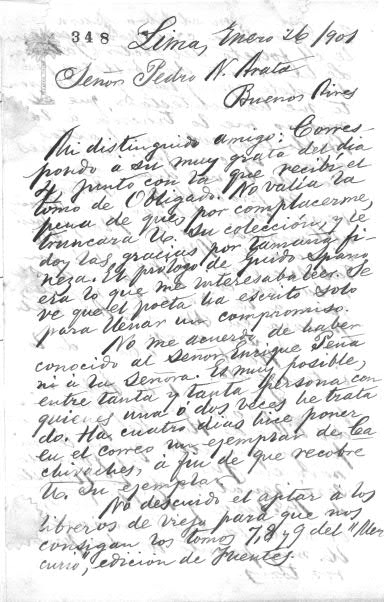 348
Lima, Enero 26/901
Señor Pedro N. Arata
Buenos Aires
Mi distinguido amigo: Corres-
pondo á su muy grata del dia
4, junto con la que recibí el
tomo de Obligado. No valía la
pena de que, por complacerme,
truncara U. su colección, y le
doy las gracias por tamaña fi-
neza. El prólogo de Guido Spano
era lo que me interesaba ver. Se
ve que el poeta ha escrito solo
para llenar un compromiso.
No me acuerdo de haber
conocido al Señor Enrique Peña
ni á su Señora. Es muy posible,
entre tanta y tanta persona con
quienes una ó dos veces he trata
do. Ha cuatro dias hice poner
en el correo un ejemplar de Ca
chivaches, á fin de que recobre
U. su ejemplar.
No descuido el agitar á los
libreros de viejo para que nos
consigan los tomos 7, 8 y 9 del "Mer
curio", edición de Fuentes.